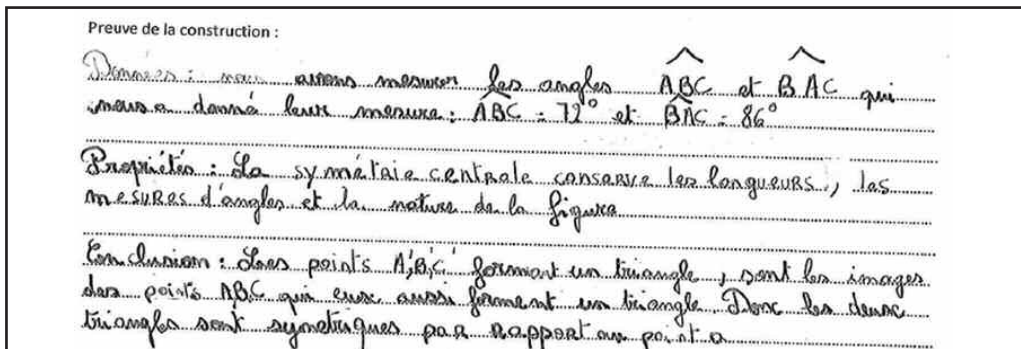 Preuve de la construction :
Données : nous avons mesurer les angles ABC et BAC qui
nous a donné leur mesure : ABC = 72° et BAC = 86°
Propriétés : La symétrie centrale conserve les longueurs, les
mesures d'angles et la nature de la figure
Conclusion : Les points A'B'C' formant un triangle, sont les images
des points ABC qui eux aussi forment un triangle Donc les deux
triangles sont symetriques par rapport au point o